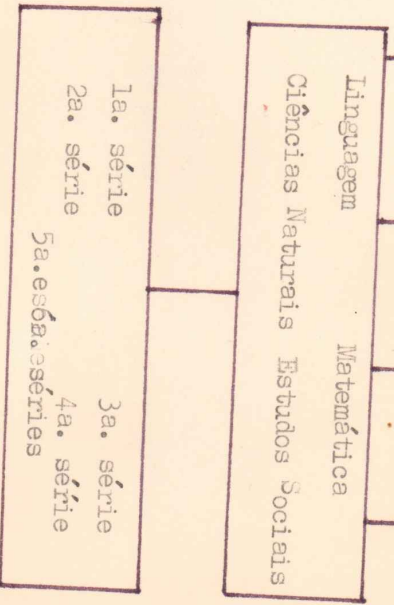 Linguagem Matemática
Ciências Naturais Estudos Sociais
1a. série 3a. série
2a. série 4a. série
5a.e 6a. séries